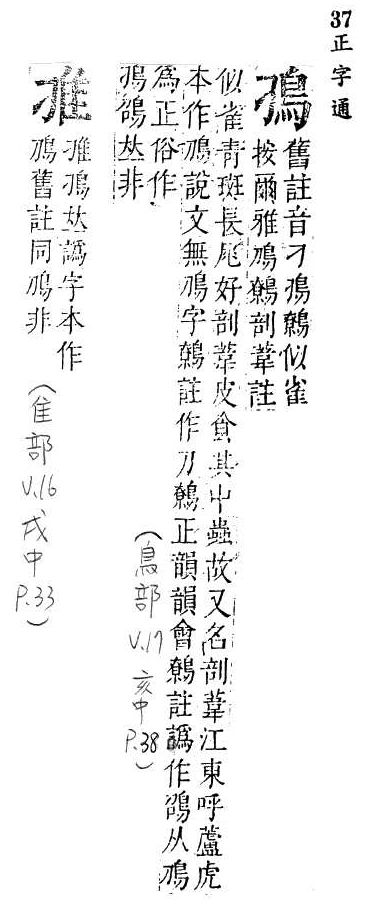 37正字通
舊註音刁鷯似雀
按爾雅鳭鷯剖葦註
似雀青斑長尾好剖葦皮食其中蟲故又名剖葦江東呼蘆虎
本作鳭說文無鳭字鷯註作刀鷯正韻韻會鷯註譌作从鳭
為正俗作
𠀤非
(鳥部 V.17 亥中 P.38)
𠀤譌字本作
鳭舊註同鳭非
(隹部 V.16 戌中 P.33)